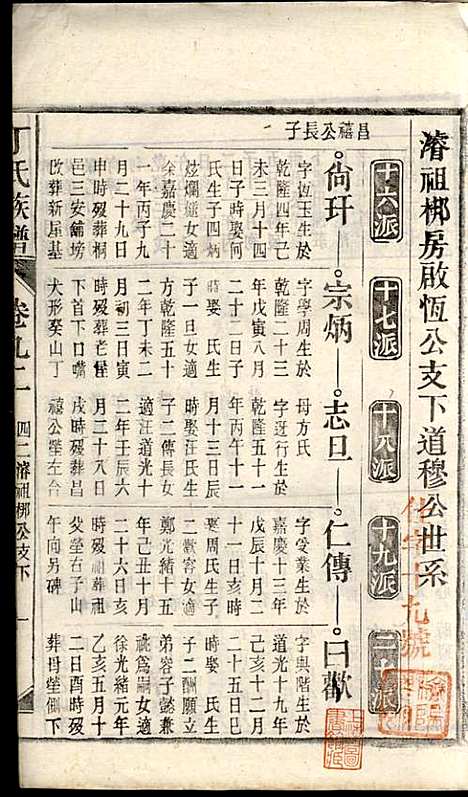 濬祖梆房啟恆公支下道穆公世系
十六派
十七派
十八派
十九派
二十派
昌禧公長子
尚玕
宗炳
志旦
仁傳
曰歡
字恆玉生於
乾隆四年己
未三月十四
日子時娶何
氏生子四炳
炫爛爐女適
余嘉慶二十
一年丙子九
月二十九日
申時歿葬桐
邑三安鋪塝
改葬新屋基
字學周生於
乾隆二十三
年戊寅八月
二十二日子
時娶 氏生
子一旦女適
乾隆五十
二年丁未二
月初三日寅
時歿葬老俚
下首下口嘴
犬形癸山丁
母方氏
字逆行生於
乾隆五十一
年丙午十一
月十三日辰
時娶汪氏生
子二傳長女
適汪道光十
二年壬辰六
月二十八日
戌時歿葬昌
禧公塋左台
字受業生於
嘉慶十三年
戊辰十月二
十一日亥時
娶周氏生子
二歡容女適
鄭光緒五年
己丑十月
二十六日亥
時歿葬祖
塋右子山
午向另碑
字與階生於
道光十九年
己亥十二月
二十五日巳
時娶 氏生
子二酬願立
弟容子懿兼
祧為嗣女適
徐光緒元年
乙亥五月十
二日酉時歿
葬母塋側下
丁氏族譜
卷九二
四二濬祖梆公支下
一